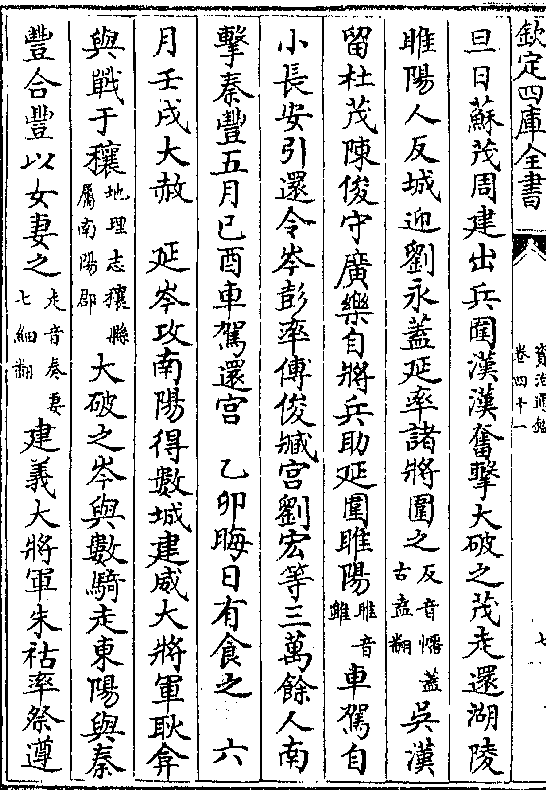 欽定四庫全書
資治通鑑
卷四十一
七
旦日蘇茂周建出兵圍漢漢奮擊大破之茂走還湖陵
睢陽人反城迎劉永蓋延率諸將圍之反音幡蓋古盍翻吳漢
留杜茂陳俊守廣樂自將兵助延圍睢陽睢音雖車駕自
小長安引還令岑彭率傅俊臧宮劉宏等三萬餘人南
擊秦豐五月己酉車駕還宫　乙卯晦日有食之　六
月壬戌大赦　延岑攻南陽得數城建威大將軍耿弇
與戰于穰地理志穰縣屬南陽郡大破之岑與數騎走東陽與秦
豐合豐以女妻之走音奏妻七細翻建義大將軍朱祜率祭遵